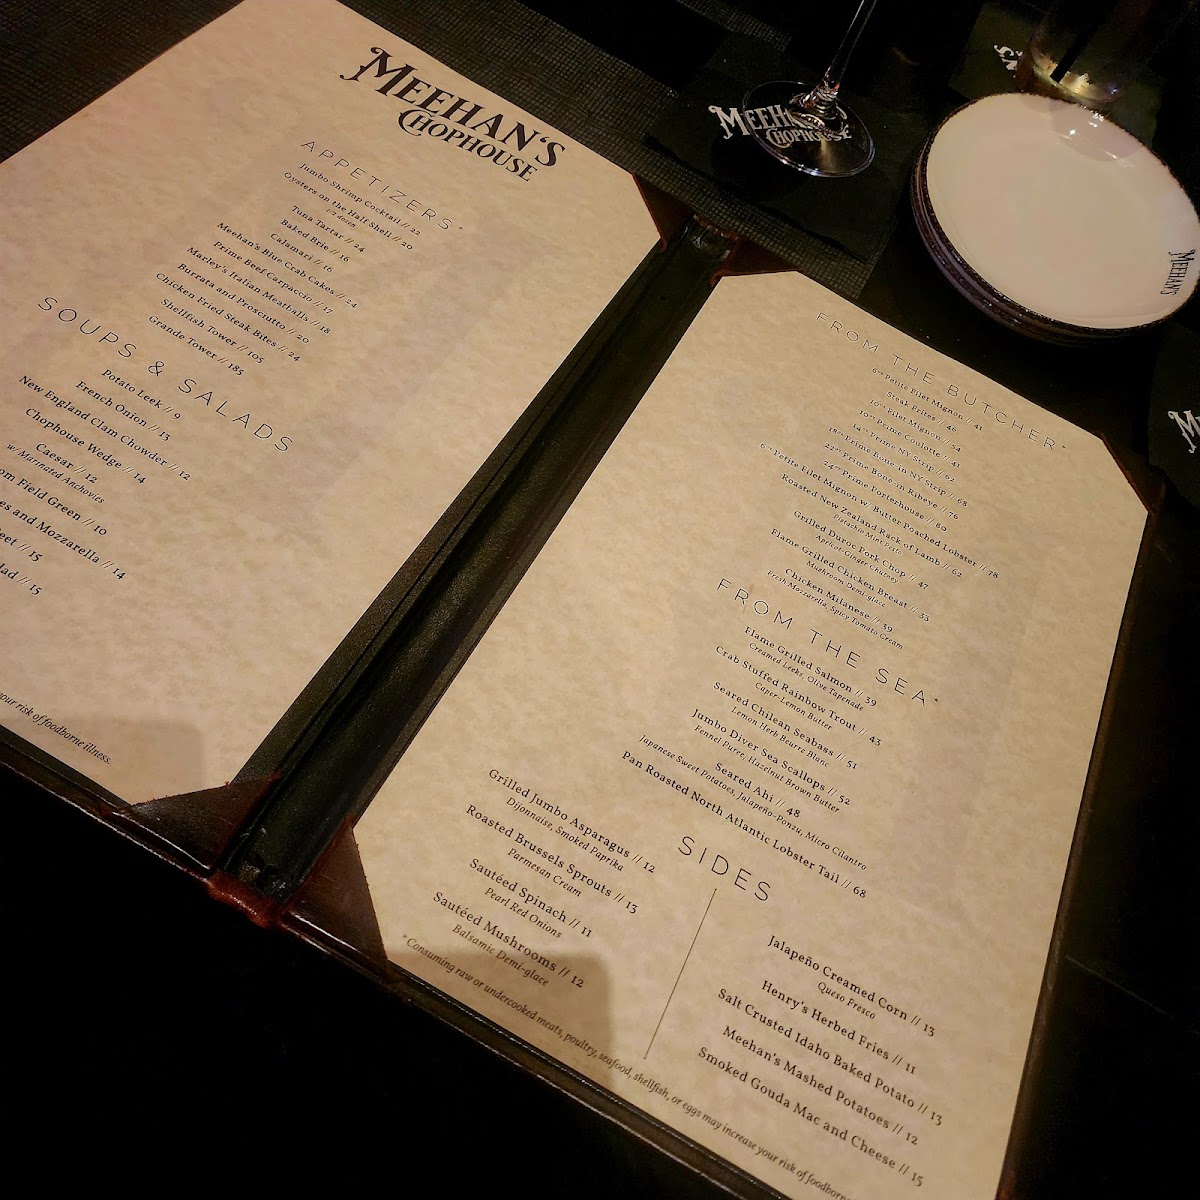 MEEHAN'S
CHOPHOUSE
APPETIZERS*
Jumbo Shrimp Cocktail // 22
Oysters on the Half Shell // 20
1/2 dozen
Tuna Tartar // 24
Baked Brie // 16
Calamari // 16
Meehan's Blue Crab Cakes // 24
Prime Beef Carpaccio // 17
Marley's Italian Meatballs // 18
Burrata and Prosciutto // 20
Chicken Fried Steak Bites // 24
Shellfish Tower // 105
Grande Tower // 185
SOUPS & SALADS
Potato Leek // 9
French Onion // 13
New England Clam Chowder // 12
Chophouse Wedge // 14
Caesar // 12
w/ Marinated Anchovies
Field Green // 10
and Mozzarella // 14
// 15
// 15
your risk of foodborne illness.
FROM THE BUTCHER*
6oz Petite Filet Mignon // 41
Steak Frites // 46
10oz Filet Mignon // 54
10oz Prime Coulotte // 41
14oz Prime NY Strip // 62
18oz Prime Bone-in NY Strip // 68
22oz Prime Bone-in Ribeye // 76
24oz Prime Porterhouse // 80
6oz Petite Filet Mignon w/ Butter Poached Lobster // 78
Roasted New Zealand Rack of Lamb // 62
Pistachio Mint Pesto
Grilled Duroc Pork Chop // 47
Apricot-Ginger Chutney
Flame Grilled Chicken Breast // 33
Mushroom Demi-glace
Chicken Milanese // 39
Fresh Mozzarella, Spicy Tomato Cream
FROM THE SEA*
Flame Grilled Salmon // 39
Creamed Leeks, Olive Tapenade
Crab Stuffed Rainbow Trout // 43
Caper-Lemon Butter
Seared Chilean Seabass // 51
Lemon Herb Beurre Blanc
Jumbo Diver Sea Scallops // 52
Fennel Puree, Hazelnut Brown Butter
Seared Ahi // 48
Japanese Sweet Potatoes, Jalapeño-Ponzu, Micro Cilantro
Pan Roasted North Atlantic Lobster Tail // 68
SIDES
Grilled Jumbo Asparagus // 12
Dijonnaise, Smoked Paprika
Roasted Brussels Sprouts // 13
Parmesan Cream
Sautéed Spinach // 11
Pearl Red Onions
Sautéed Mushrooms // 12
Balsamic Demi-glace
Jalapeño Creamed Corn // 13
Queso Fresco
Henry's Herbed Fries // 11
Salt Crusted Idaho Baked Potato // 13
Meehan's Mashed Potatoes // 12
Smoked Gouda Mac and Cheese // 15
* Consuming raw or undercooked meats, poultry, seafood, shellfish, or eggs may increase your risk of foodborne
CHOPHOUSE
MEEHAN'S